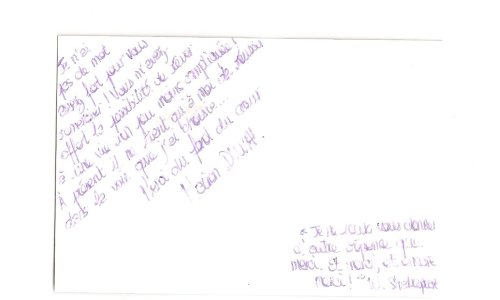 Je n'ai
pas de mot
assez fort pour vous
remercier ! Vous m'avez
offert la possibilité de rêver
à une vie un peu moins compliquée !
À présent il ne tient qu'à moi de réussir
dans la voie que j'ai
Merci du fond du cœur
D'
" Je ne vous donner
d'autre réponse que
merci. Et merci, et encore
merci ! " W. Shakespeare